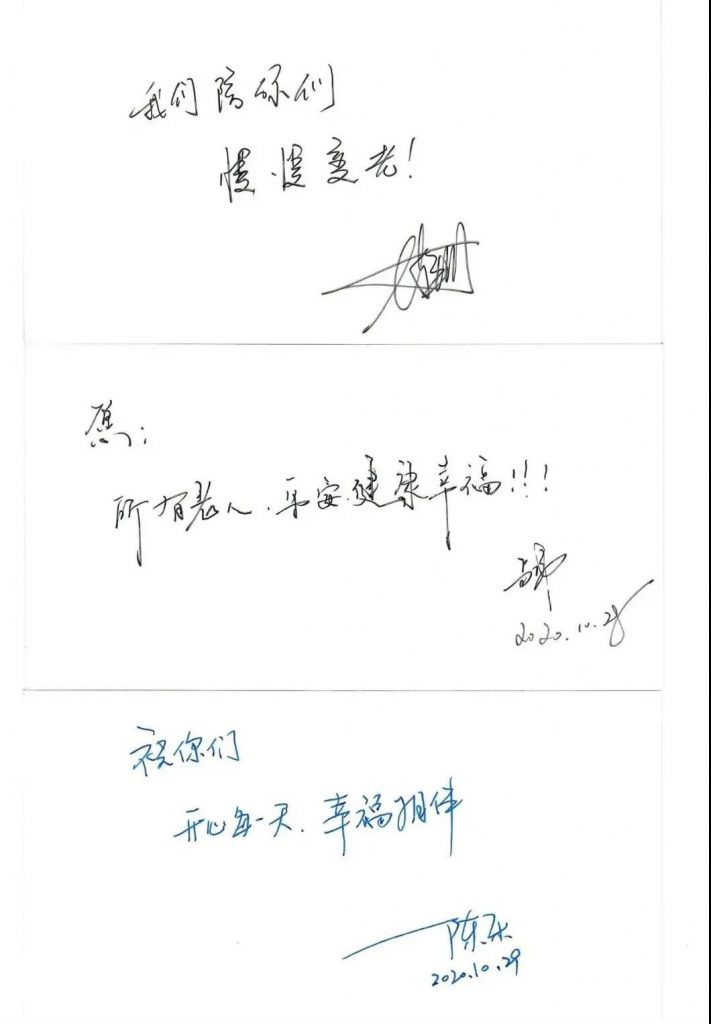 我们陪你们
慢慢变老!
愿:
所有老人、平安健康幸福!!!
2020.10.28
祝你们
开心每一天、幸福相伴
陈乐
2020.10.29